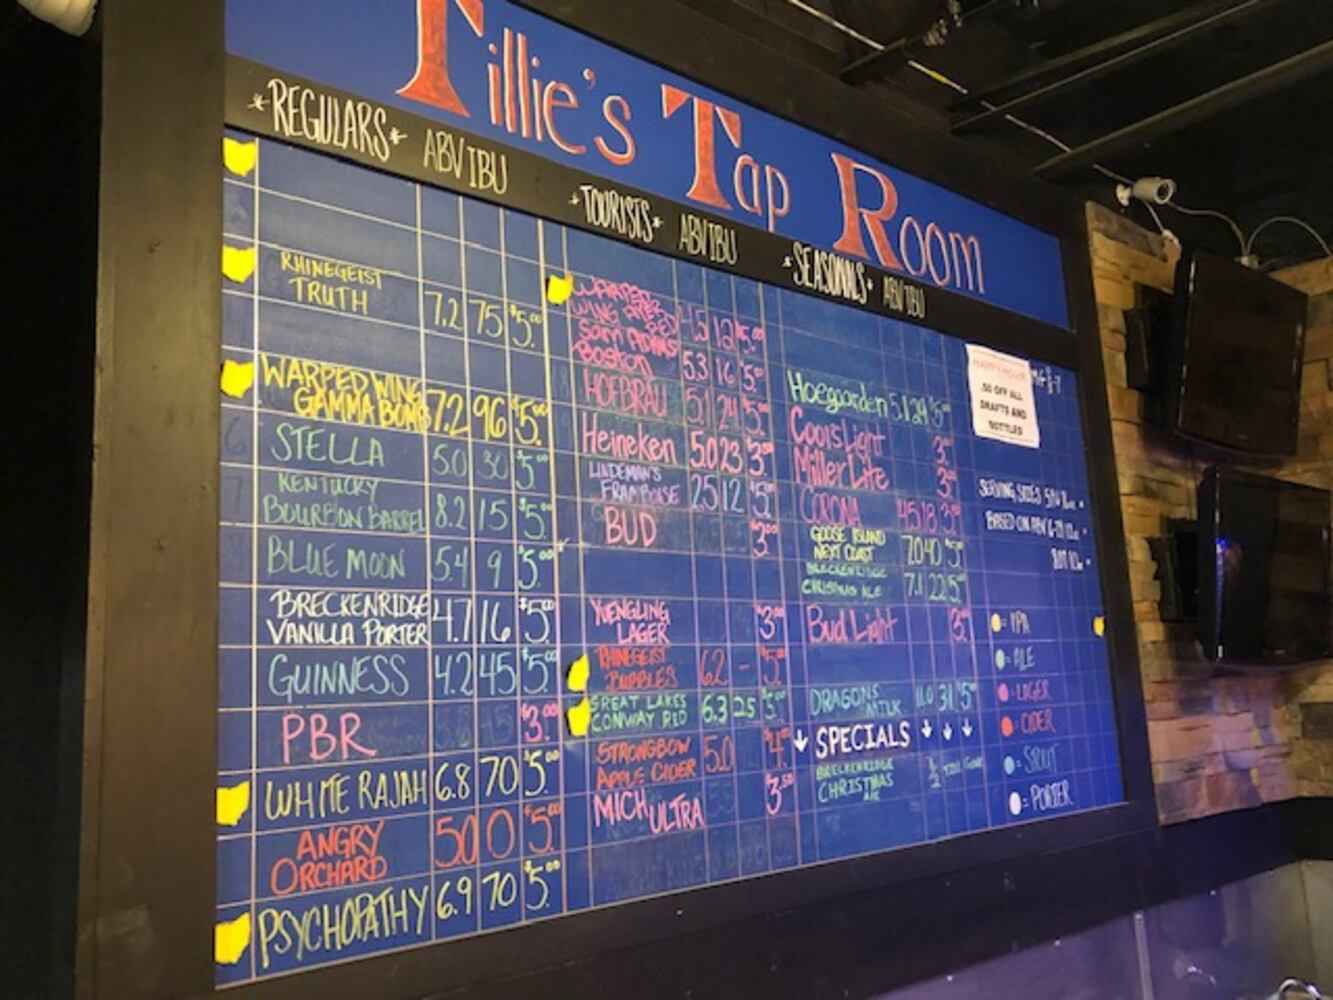 Tillie's Tap Room
*REGULARS* ABV IBU
RHINEGEIST
TRUTH 7.2 75 $5.00
WARPED WING
GAMMA BOMB 7.2 96 $5.00
STELLA 5.0 30 $5.00
KENTUCKY
BOURBON BARREL 8.2 15 $5.00
BLUE MOON 5.4 9 $5.00
BRECKENRIDGE
VANILLA PORTER 4.7 16 $5.00
GUINNESS 4.2 45 $5.00
PBR $3.00
WHITE RAJAH 6.8 70 $5.00
ANGRY
ORCHARD 5.0 0 $5.00
PSYCHOPATHY 6.9 70 $5.00
*TOURISTS* ABV IBU
WARPED
WING RED 4.5 12 $5.00
SAM ADAMS
BOSTON 5.3 16 $5.00
HOFBRAU 5.1 24 $5.00
Heineken 5.0 23 $3.50
LINDEMAN'S
FRAMBOISE 2.5 12 $5.00
BUD $3.00
YUENGLING
LAGER $3.00
RHINEGEIST
BUBBLES 6.2 - $5.00
GREAT LAKES
CONWAY RED 6.3 25 $5.00
STRONGBOW
APPLE CIDER 5.0 $4.00
MICH ULTRA 3.50
*SEASONALS* ABV IBU
Hoegaarden 5.1 24 $5.00
Coors Light 3.00
Miller Lite 3.00
CORONA 4.5 18 3.50
GOOSE ISLAND
NEXT COAST 7.0 40 $5.00
BRECKENRIDGE
CHRISTMAS ALE 7.1 22 5.00
Bud Light 3.00
DRAGONS
MILK 11.0 31 $5.00
↓ SPECIALS ↓ ↓ ↓
BRECKENRIDGE
CHRISTMAS
ALE 1/2
HAPPY HOUR
.50 OFF ALL
DRAFTS AND
BOTTLES
SERVING SIZES
BASED ON ABV
= IPA
= ALE
= LAGER
= CIDER
= STOUT
= PORTER